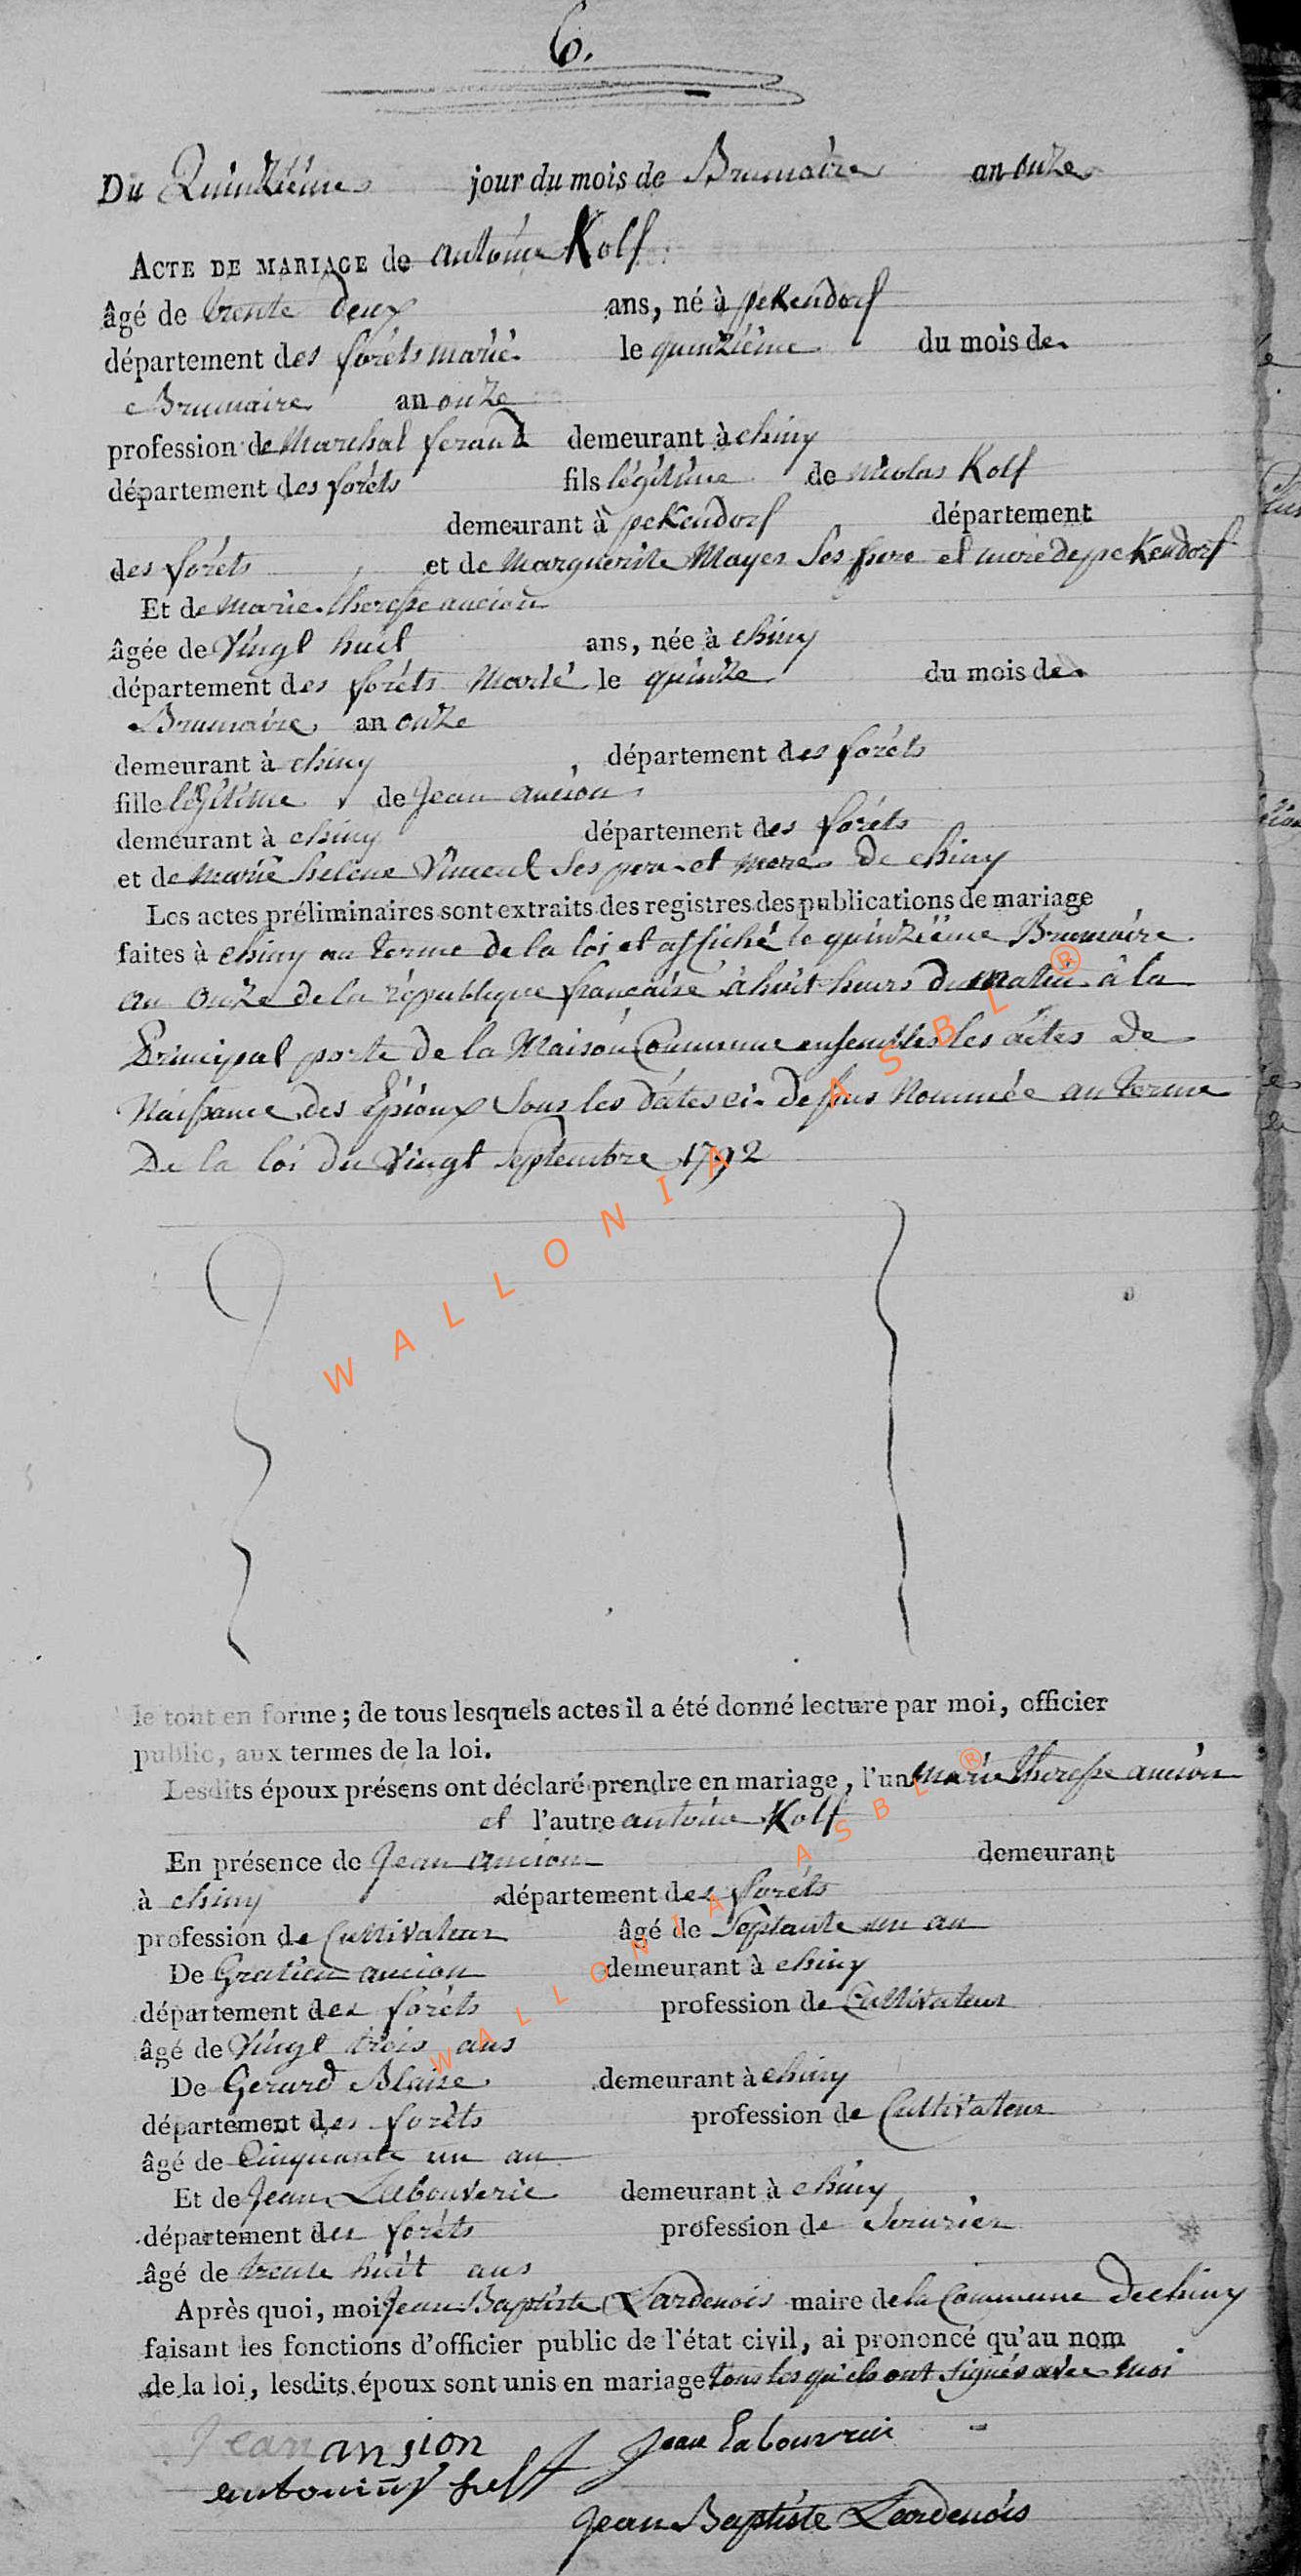 6.
Du Quinzième jour du mois de Brumaire an onze
ACTE DE MARIAGE de antoine Kolf
âgé de trente deux ans, né à peKendorf
département des forêts marié le quinzième du mois de
Brumaire an onze
profession de Marchal ferant demeurant à chiny
département des forêts fils légitime de Nicolas Kolf
demeurant à peKendorf département
des forêts et de Marguerite Mayer Ses pere et mere de peKendorf
Et de Marie therese ancion
âgée de Vingt huit ans, née à chiny
département des forêts Marié le quinze du mois de
Brumaire an onze
demeurant à chiny département des forêts
fille légitime de Jean ancion
demeurant à chiny département des forêts
et de Marie helene Vincent Ses pere et mere de chiny
Les actes préliminaires sont extraits des registres des publications de mariage
faites à chiny au terme de la loi et affiché le quinzième Brumaire
an onze de la république française à huit heurs du matin à la
Principal porte de la Maison Commune ensembles les actes de
Naissance des Epioux Sous les dates ci-dessus Nommée au terme
De la loi du Vingt Septembre 1792
le tout en forme ; de tous lesquels actes il a été donné lecture par moi, officier
public, aux termes de la loi.
Lesdits époux présens ont déclaré prendre en mariage, l'un Marie therese ancion
et l'autre antoine Kolf
En présence de Jean ancion demeurant
à chiny département des forêts
profession de Cultivateur âgé de Septante un an
De Gratien ancion demeurant à chiny
département des forêts profession de Cultivateur
âgé de Vingt trois ans
De Gerard Blaise demeurant à chiny
département des forêts profession de Cultivateur
âgé de Cinquante un an
Et de Jean Labouverie demeurant à chiny
département des forêts profession de Serurier
âgé de trente huit ans
Après quoi, moi Jean Baptiste Lardenois maire de la Commune de chiny
faisant les fonctions d'officier public de l'état civil, ai prononcé qu'au nom
de la loi, lesdits époux sont unis en mariage tous les qu'els ont signés avec Moi
Jean ansion Jean Labouverie
Jean Baptiste Lardenois
WALLONIA ASBL ®
WALLONIA ASBL ®